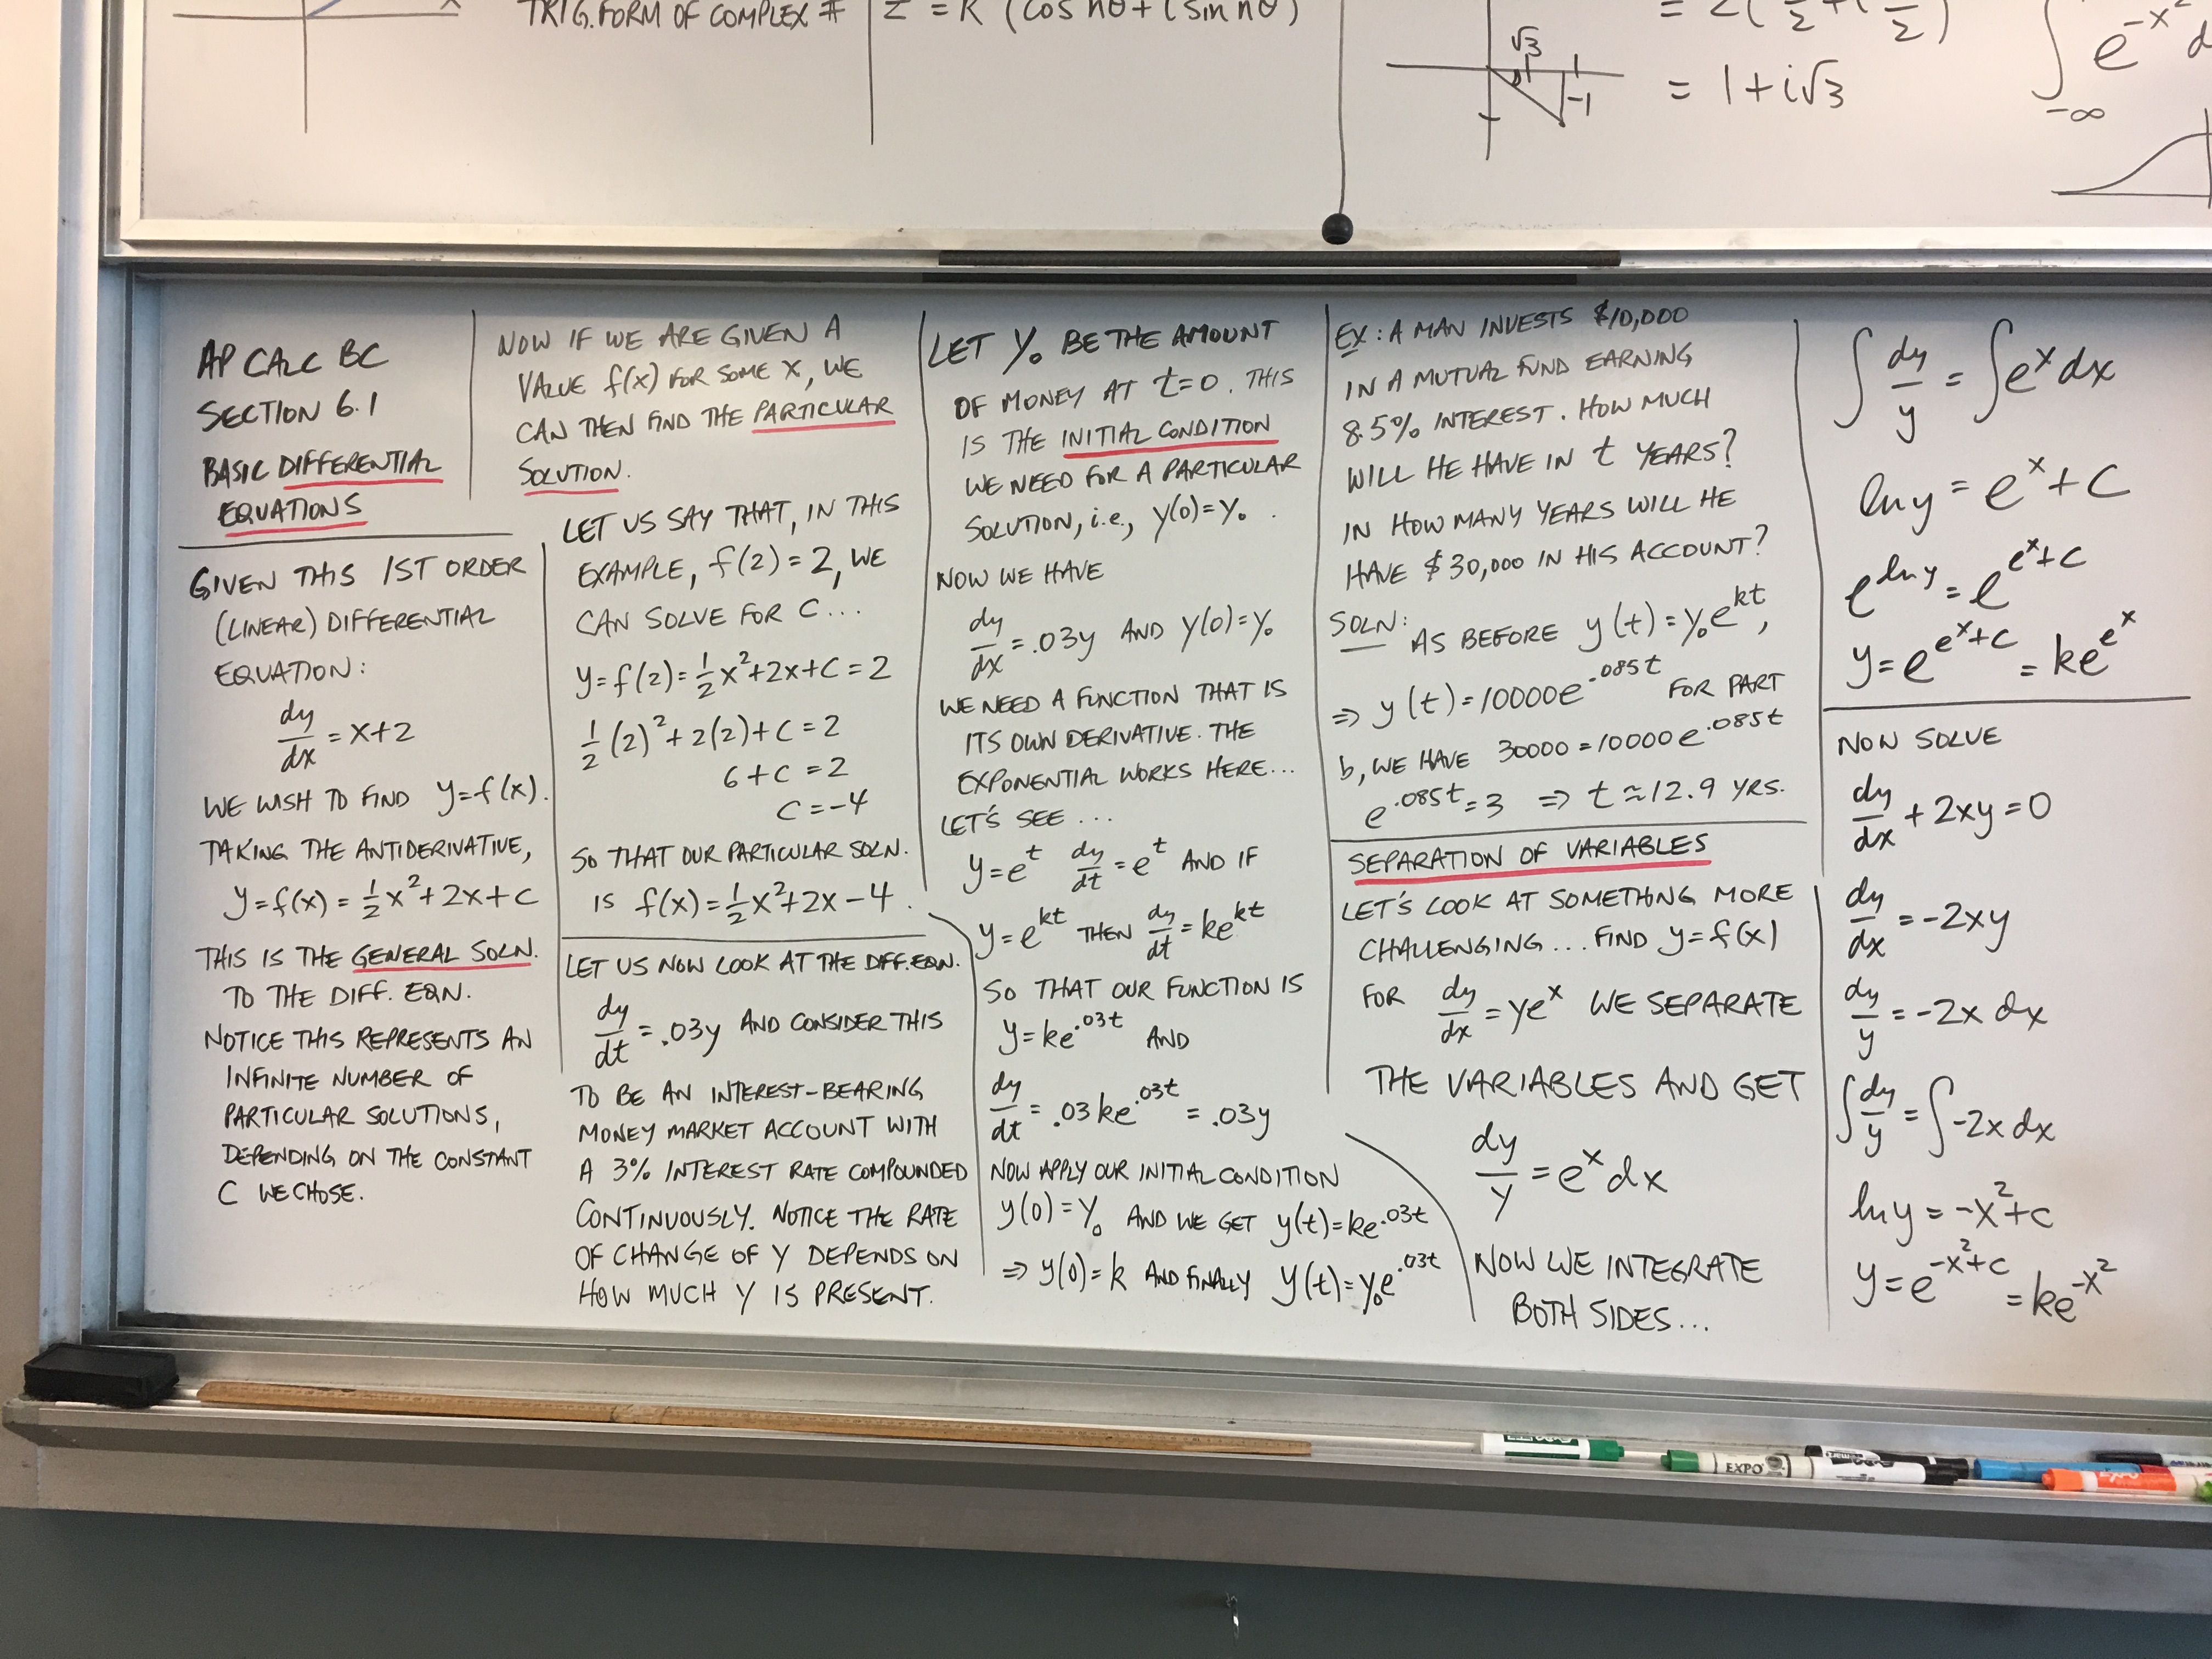 TRIG. FORM OF COMPLEX #
z = R (cos nθ + i sin nθ)
√3
-1
= 1+i√3
∫ e^-x² d
-∞
AP CALC BC
SECTION 6.1
BASIC DIFFERENTIAL
EQUATIONS
GIVEN THIS 1ST ORDER
(LINEAR) DIFFERENTIAL
EQUATION:
dy/dx = x+2
WE WISH TO FIND y=f(x).
TAKING THE ANTIDERIVATIVE,
y=f(x) = 1/2 x²+2x+C
THIS IS THE GENERAL SOLN.
TO THE DIFF. EQN.
NOTICE THIS REPRESENTS AN
INFINITE NUMBER OF
PARTICULAR SOLUTIONS,
DEPENDING ON THE CONSTANT
C WE CHOSE.
NOW IF WE ARE GIVEN A
VALUE f(x) FOR SOME X, WE
CAN THEN FIND THE PARTICULAR
SOLUTION.
LET US SAY THAT, IN THIS
EXAMPLE, f(2)=2, WE
CAN SOLVE FOR C...
y=f(2)=1/2 x²+2x+C=2
1/2 (2)²+2(2)+C=2
6+C=2
C=-4
SO THAT OUR PARTICULAR SOLN.
IS f(x)=1/2 x²+2x-4.
LET US NOW LOOK AT THE DIFF. EQN.
dy/dt = .03y AND CONSIDER THIS
TO BE AN INTEREST-BEARING
MONEY MARKET ACCOUNT WITH
A 3% INTEREST RATE COMPOUNDED
CONTINUOUSLY. NOTICE THE RATE
OF CHANGE OF Y DEPENDS ON
HOW MUCH Y IS PRESENT.
LET Y₀ BE THE AMOUNT
OF MONEY AT t=0. THIS
IS THE INITIAL CONDITION
WE NEED FOR A PARTICULAR
SOLUTION, i.e., y(0)=Y₀.
NOW WE HAVE
dy/dx = .03y AND y(0)=Y₀
WE NEED A FUNCTION THAT IS
ITS OWN DERIVATIVE. THE
EXPONENTIAL WORKS HERE...
LET'S SEE ...
y=e^t dy/dt=e^t AND IF
y=e^kt THEN dy/dt=ke^kt
SO THAT OUR FUNCTION IS
y=ke^.03t AND
dy/dt = .03ke^.03t = .03y
NOW APPLY OUR INITIAL CONDITION
y(0)=Y₀ AND WE GET y(t)=ke^.03t
⇒ y(0)=k AND FINALLY y(t)=Y₀e^.03t
EX: A MAN INVESTS $10,000
IN A MUTUAL FUND EARNING
8.5% INTEREST. HOW MUCH
WILL HE HAVE IN t YEARS?
IN HOW MANY YEARS WILL HE
HAVE $30,000 IN HIS ACCOUNT?
SOLN: AS BEFORE y(t)=Y₀e^kt,
⇒ y(t)=10000e^.085t FOR PART
b, WE HAVE 30000=10000e^.085t
e^.085t=3 ⇒ t≈12.9 YRS.
SEPARATION OF VARIABLES
LET'S LOOK AT SOMETHING MORE
CHALLENGING... FIND y=f(x)
FOR dy/dx = ye^x WE SEPARATE
THE VARIABLES AND GET
dy/y = e^x dx
NOW WE INTEGRATE
BOTH SIDES...
∫ dy/y = ∫ e^x dx
ln y = e^x+C
e^ln y = e^e^x+C
y=e^e^x+C = ke^e^x
NOW SOLVE
dy/dx + 2xy=0
dy/dx = -2xy
dy/y = -2x dx
∫ dy/y = ∫ -2x dx
ln y = -x²+C
y=e^-x²+C = ke^-x²
EXPO